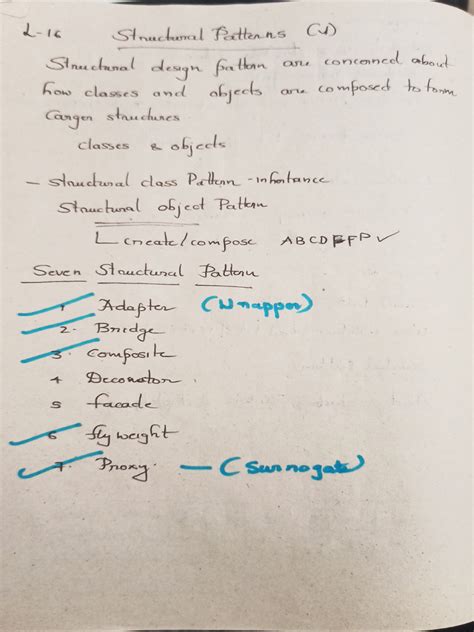 L-16 Structural Patterns (U)
Structural design pattern are concerned about
how classes and objects are composed to form
Larger structures
classes & objects
- Structural class Pattern - inheritance
Structural object Pattern
create/compose ABCDFFP ✓
Seven Structural Pattern
1 Adapter (Wrapper)
2. Bridge
3. Composite
4 Decorator
5 facade
6 fly weight
7. Proxy. — (Surrogate)